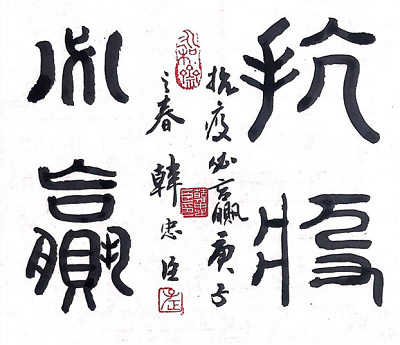 抗疫
必贏
抗疫必贏庚子
之春 韓忠臣